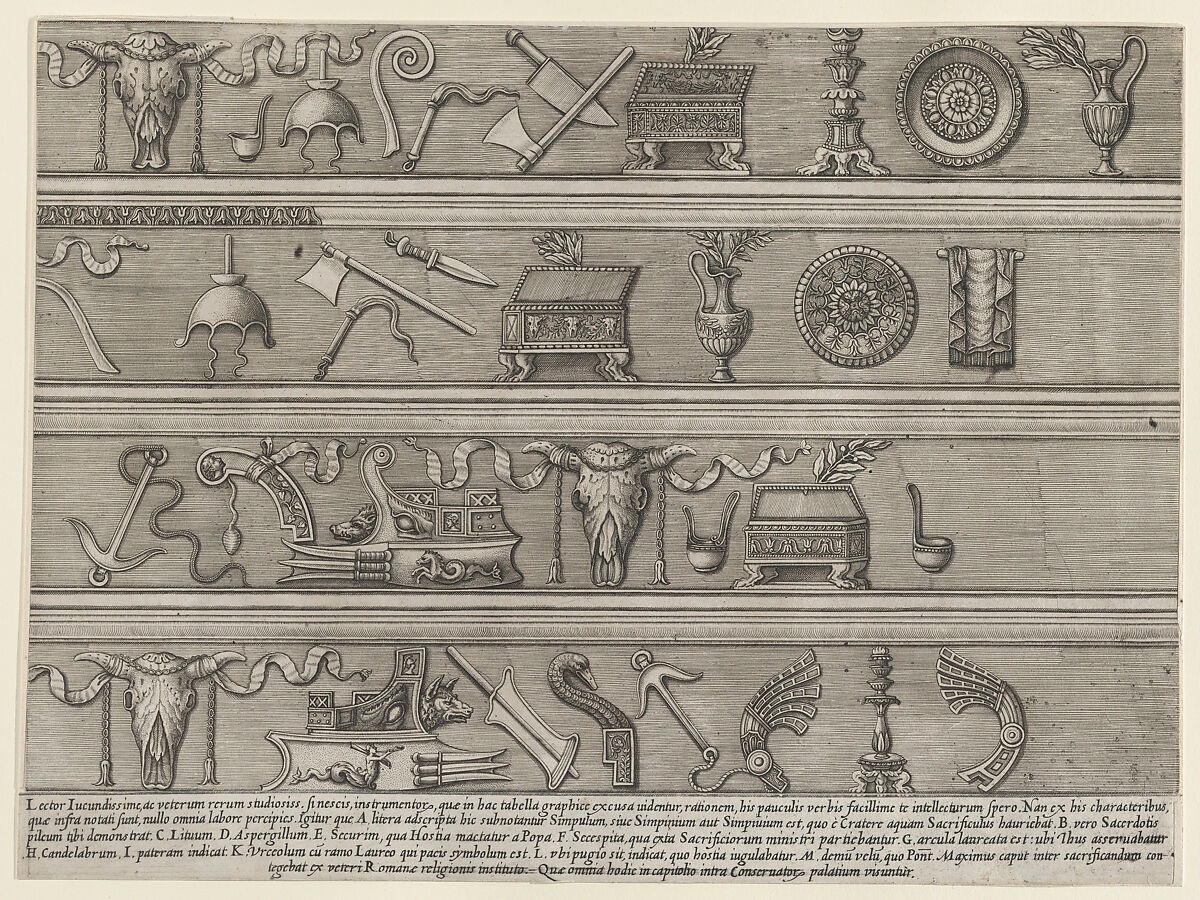 Lector Iucundissime, ac veterum rerum studiosiss. si nescis, instrumentoꝝ, quæ in hac tabella graphice excusa uidentur, rationem, his pauculis verbis facillime te intellecturum spero. Nan ex his characteribus,
quæ infra notati sunt, nullo omnia labore percipies. Igitur que A, litera adscripta hic subnotantur Simpulum, siue Simpinium aut Simpuuium est, quo è Cratere aquam Sacrificulus hauriebat. B. vero Sacerdotis
pileum tibi demonstrat. C. Lituum. D. Aspergillum. E. Securim, qua Hostia mactatur a Popa. F. Secespita, qua exta Sacrificiorum ministri partiebantur. G. arcula laureata est: ubi Thus asseruabatur
.H. Candelabrum, I. pateram indicat. K. Vrceolum cū ramo Laureo qui pacis symbolum est. L. vbi pugio sit, indicat, quo hostia iugulabatur. M. demū velū, quo Pont. Maximus caput inter sacrificandum con
tegebat ex veteri Romanæ religionis instituto.– Quæ omnia hodie in capitolio intra Conseruatoꝝ palatium visuntur.